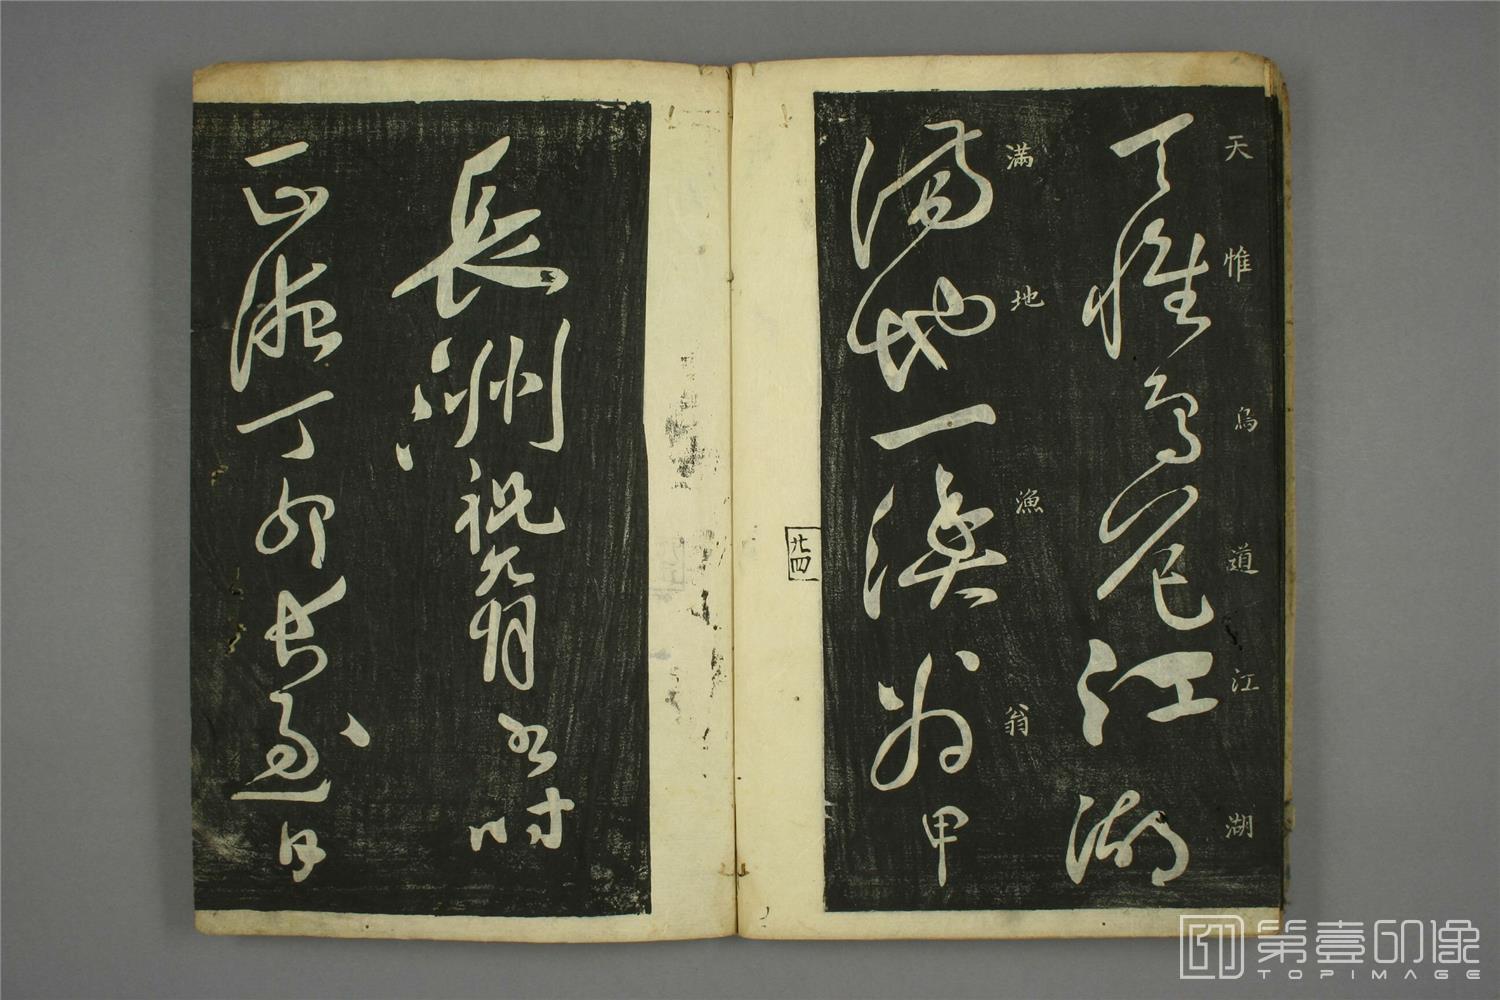 天惟鳥道江湖
天惟鳥道江湖
滿地漁翁
滿地一漁翁甲
廿四
長洲祝允明書時
正德丁卯長日
第壹印像
TOPIMAGE